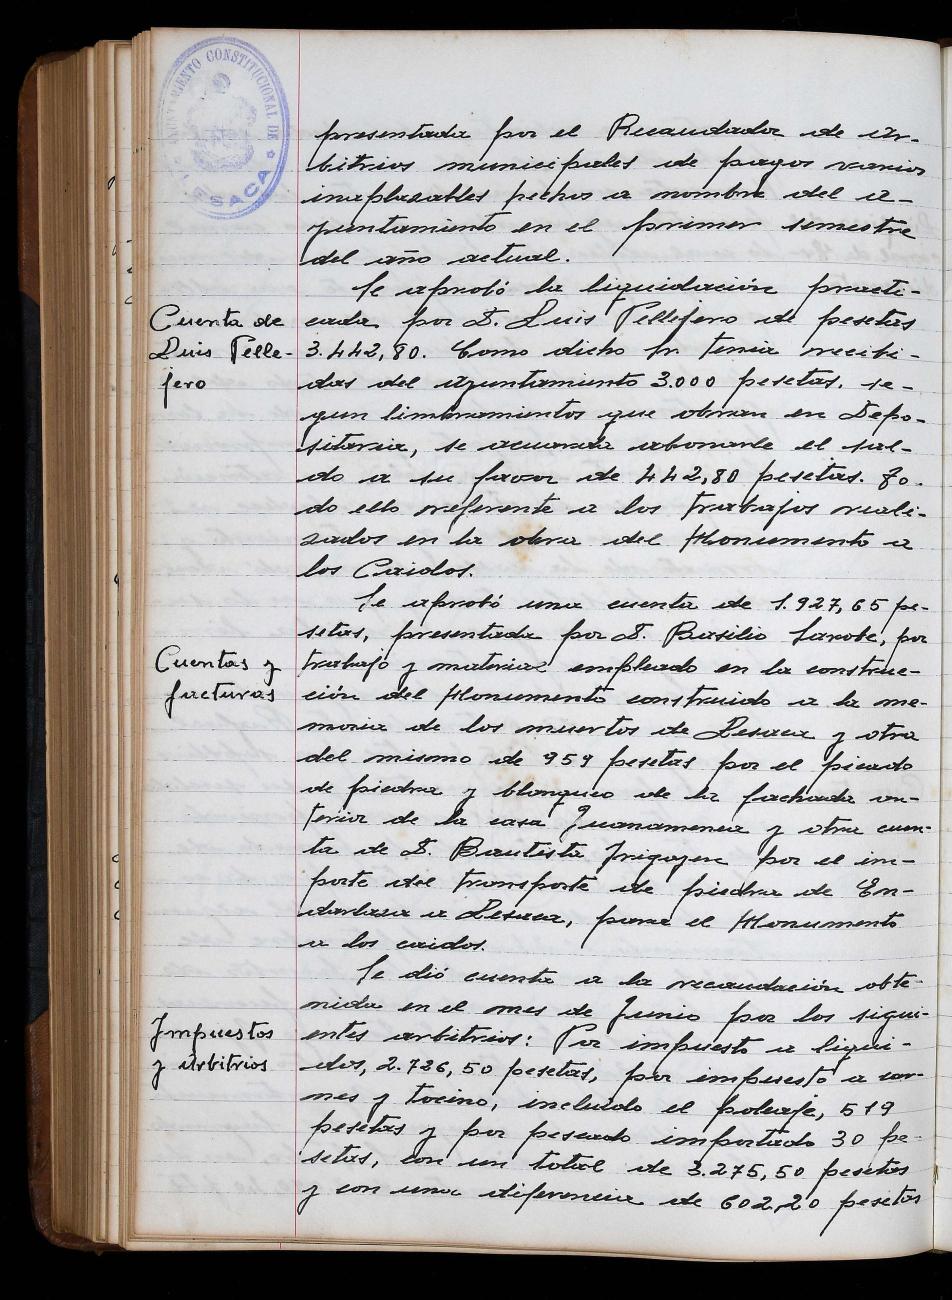 AYUNTAMIENTO CONSTITUCIONAL DE
LESACA
presentada por el Recaudador de ar-
bitrios municipales de pagos varios
inaplazables hechos a nombre del a-
yuntamiento en el primer semestre
del año actual.
Se aprobó la liquidación practi-
Cuenta de
Luis Pelle-
jero
cada por D. Luis Pellejero de pesetas
3.442,80. Como dicho Sr. tenia recibi-
das del ayuntamiento 3.000 pesetas, se-
gun libramientos que obran en Depo-
sitaria, se acuerda abonarle el sal-
do a su favor de 442,80 pesetas. To-
do ello referente a los trabajos reali-
zados en la obra del Monumento a
los Caidos.
Se aprobó una cuenta de 1.927,65 pe-
setas, presentada por D. Basilio Sarobe, por
Cuentas y
facturas
trabajo y material empleado en la construc-
ción del Monumento construido a la me-
moria de los muertos de Lesaca y otra
del mismo de 959 pesetas por el picado
de piedra y blanqueo de la fachada an-
terior de la casa Juanamenea y otra cuen-
ta de D. Bautista Irigoyen por el im-
porte del transporte de piedra de En-
darlaza a Lesaca, para el Monumento
a los caidos.
Se dió cuenta a la recaudación obte-
nida en el mes de Junio por los sigui-
Impuestos
y arbitrios
entes arbitrios: Por impuesto a liqui-
dos, 2.726,50 pesetas, por impuesto a car-
nes y tocino, incluido el poleaje, 519
pesetas y por pescado importado 30 pe-
setas, con un total de 3.275,50 pesetas
y con una diferencia de 602,20 pesetas